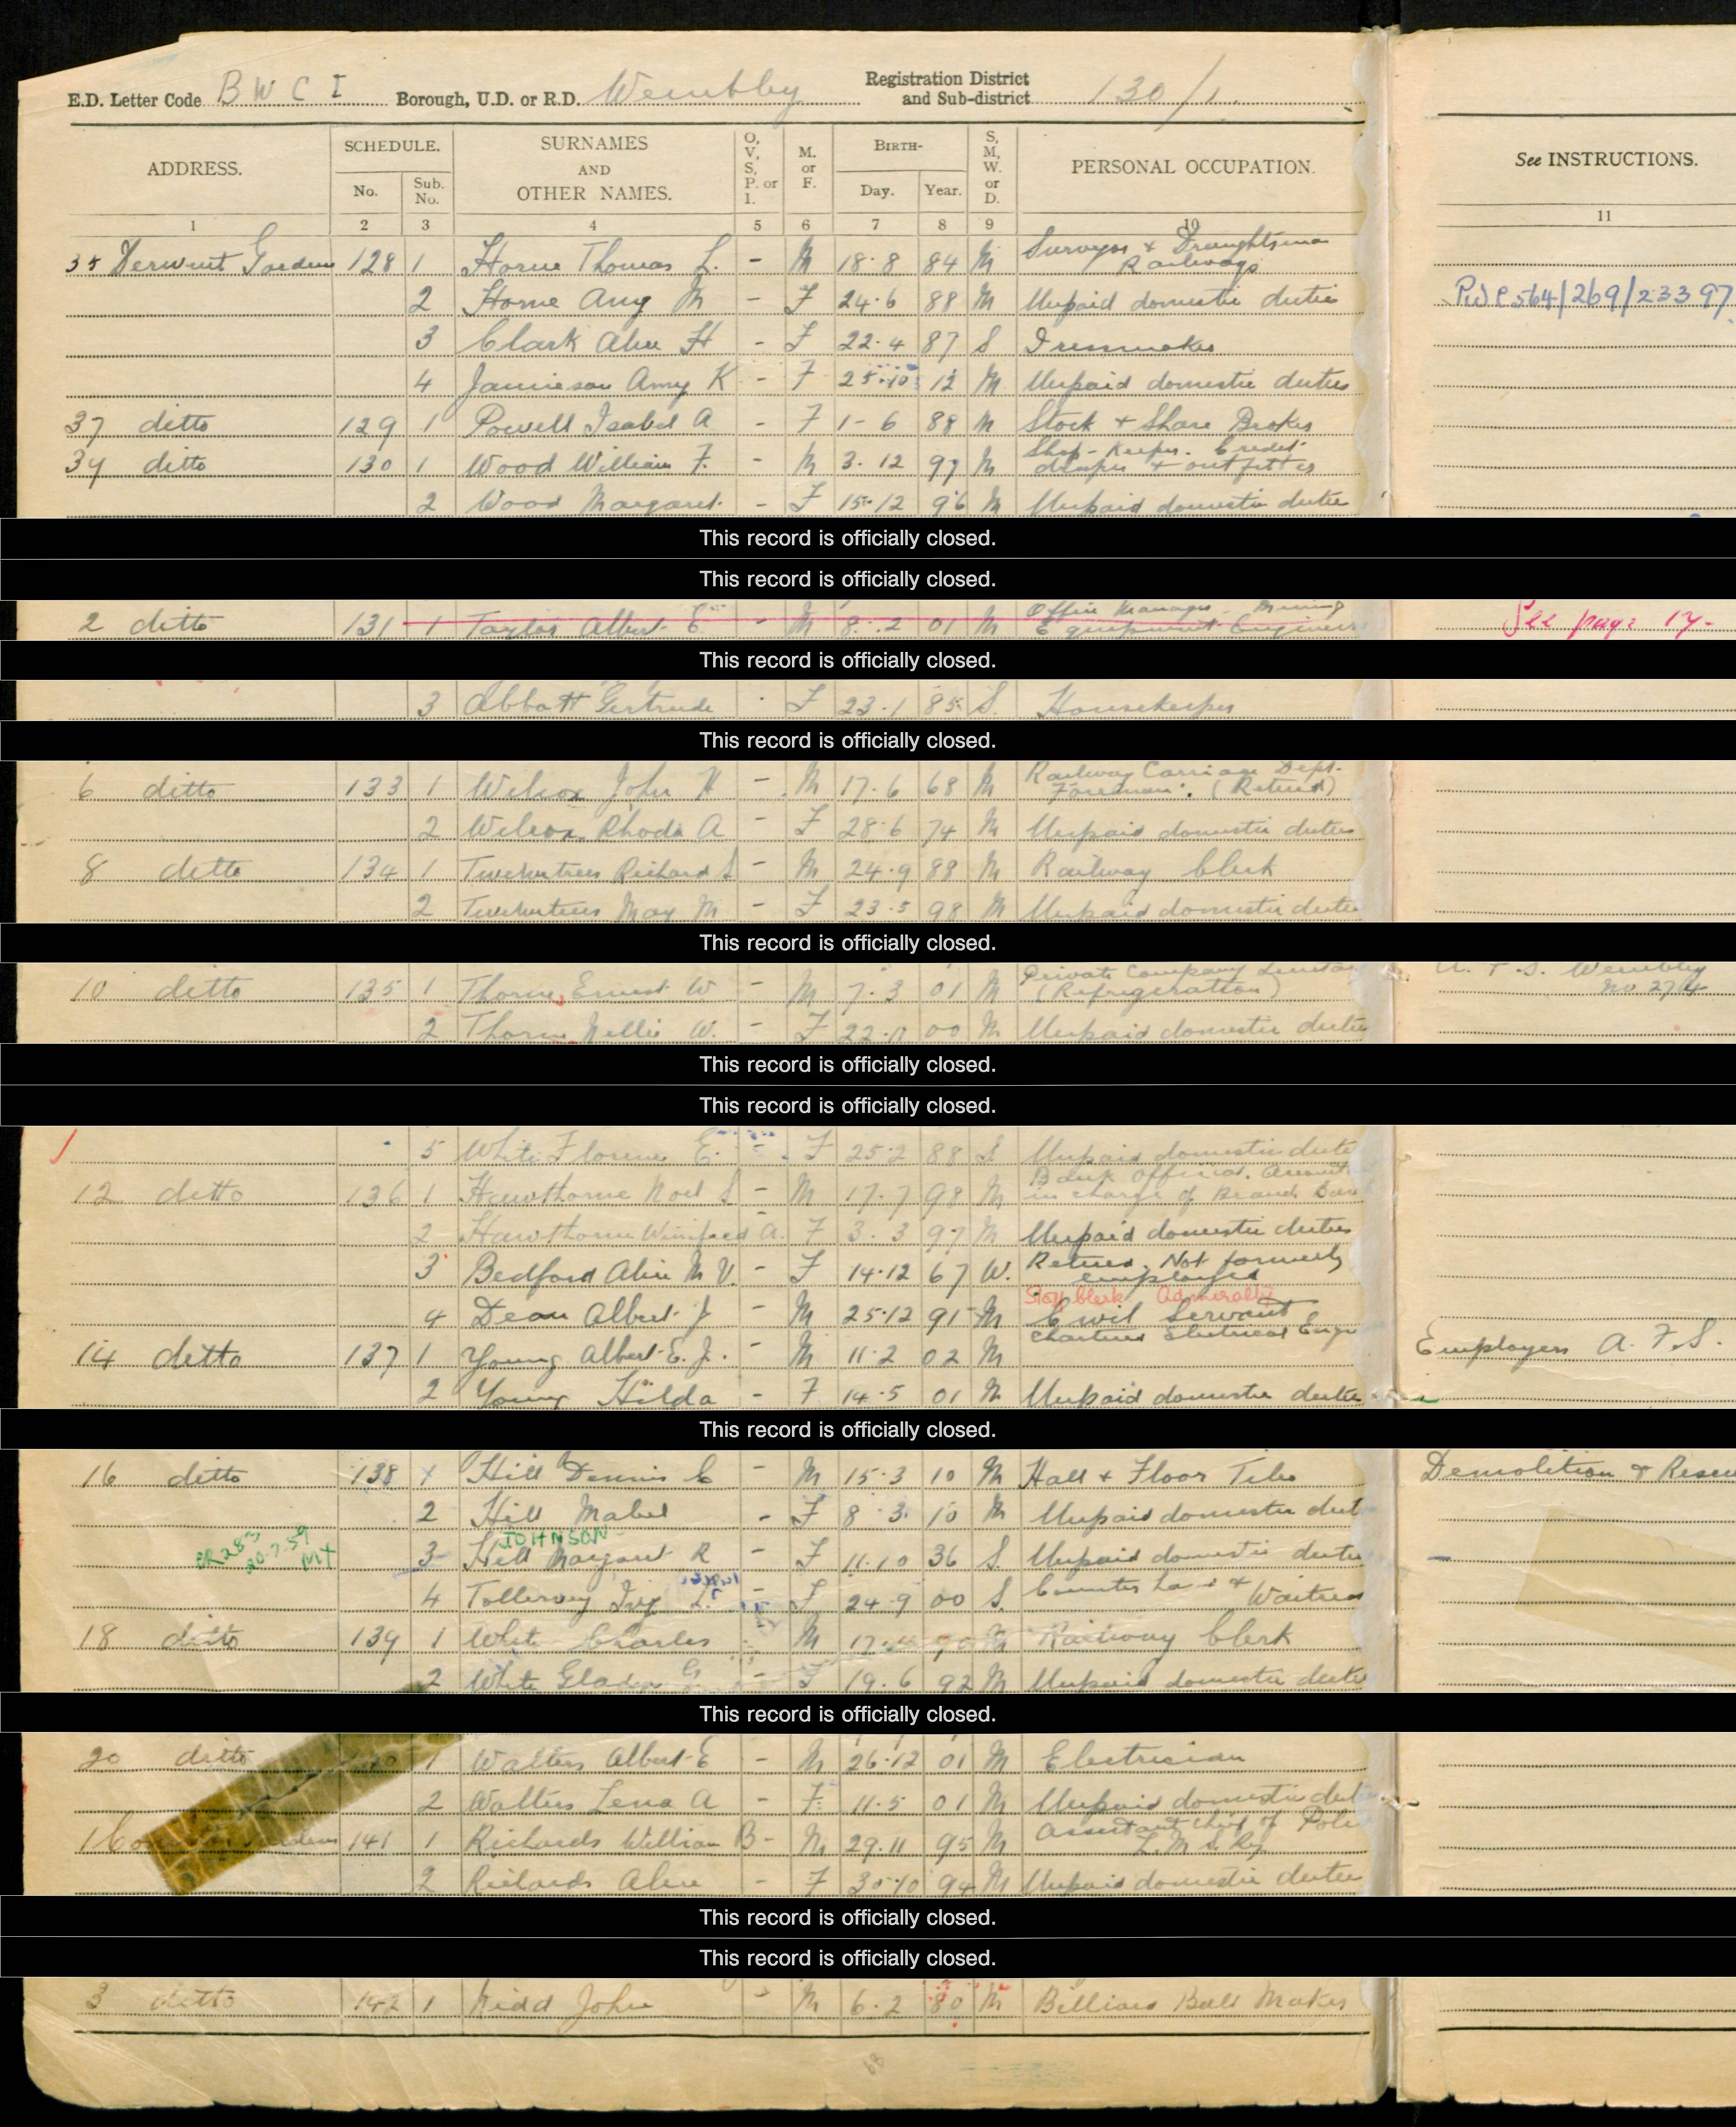 E.D. Letter Code B W C I Borough, U.D. or R.D. Wembley Registration District and Sub-district 130/1.
ADDRESS. SCHEDULE. No. Sub. No. SURNAMES AND OTHER NAMES. O, V, S, P. or I. M. or F. BIRTH- Day. Year. S, M, W. or D. PERSONAL OCCUPATION. See INSTRUCTIONS.
1 2 3 4 5 6 7 8 9 10 11
35 Derwent Gardens 128 1 Horne Thomas L. - M 18.8 84 M Surveyor & Draughtsman Railways
2 Horne Amy M - F 24.6 88 M Unpaid domestic duties
3 Clark Alice H - F 22.4 87 S Dressmaker
4 Jamieson Amy K - F 25.10 12 M Unpaid domestic duties
37 ditto 129 1 Powell Isabel A - F 1-6 88 M Stock & Share Broker
39 ditto 130 1 Wood William F. - M 3.12 97 M Shop-Keeper. Credit draper & outfitter
2 Wood Margaret. - F 15.12 96 M Unpaid domestic duties
This record is officially closed.
This record is officially closed.
2 ditto 131 1 Taylor Albert E - M 8.2 01 M Office Manager - Mining Equipment Engineers See page 17-
This record is officially closed.
3 Abbott Gertrude F 23.1 85 S. Housekeeper
This record is officially closed.
6 ditto 133 1 Wilcox John H - M 17.6 68 M Railway Carriage Dept. Foreman. (Retired)
2 Wilcox Rhoda A - F 28.6 74 M Unpaid domestic duties
8 ditto 134 1 Twelvetrees Richard S - M 24.9 88 M Railway Clerk
2 Twelvetrees May M - F 23.5 98 M Unpaid domestic duties
This record is officially closed.
10 ditto 135 1 Thorne Ernest W - M 7.3 01 M Private Company (Refrigeration) Wembley No 274
2 Thorne Nellie W. - F 22.11 00 M Unpaid domestic duties
This record is officially closed.
This record is officially closed.
5 White Florence E. - F 25.2 88 S Unpaid domestic duties
12 ditto 136 1 Hawthorne Noel S - M 17.7 98 M Bank Official. in charge of Branch Bank
2 Hawthorne Winifred A. F 3.3 97 M Unpaid domestic duties
3 Bedford Alice M V. - F 14.12 67 W. Retired. Not formerly employed
4 Dean Albert J - M 25.12 91 M Staff Clerk Admiralty Civil Servant
14 ditto 137 1 Young Albert E. J. - M 11.2 02 M Chartered Electrical Engr Employers A. F. S.
2 Young Hilda - F 14.5 01 M Unpaid domestic duties
This record is officially closed.
16 ditto 138 1 Hill Dennis C - M 15.3 10 M Hall & Floor Tiler Demolition & Rescue
2 Hill Mabel - F 8.3. 10 M Unpaid domestic dut
JOHNSON
3 Hill Margaret R - F 11.10 36 S. Unpaid domestic duties
4 Tollervey Ivy L. - F 24.9 00 S. Counter hand & Waitress
18 ditto 139 1 White Charles M 17. 90 M Railway Clerk
2 White Gladys G - F 19.6 92 M Unpaid domestic duties
This record is officially closed.
20 ditto 140 1 Walters Albert E - M 26.12 01 M Electrician
2 Walters Lena A - F 11.5 01 M Unpaid domestic dut
1 Gardens 141 1 Richards William B - M 29.11 95 M Assistant Chief of Police L. M. S. Rly
2 Richards Alice - F 30.10 94 M Unpaid domestic duties
This record is officially closed.
This record is officially closed.
3 ditto 142 1 Kidd John - M 6.2 80 M Billiard Ball Maker